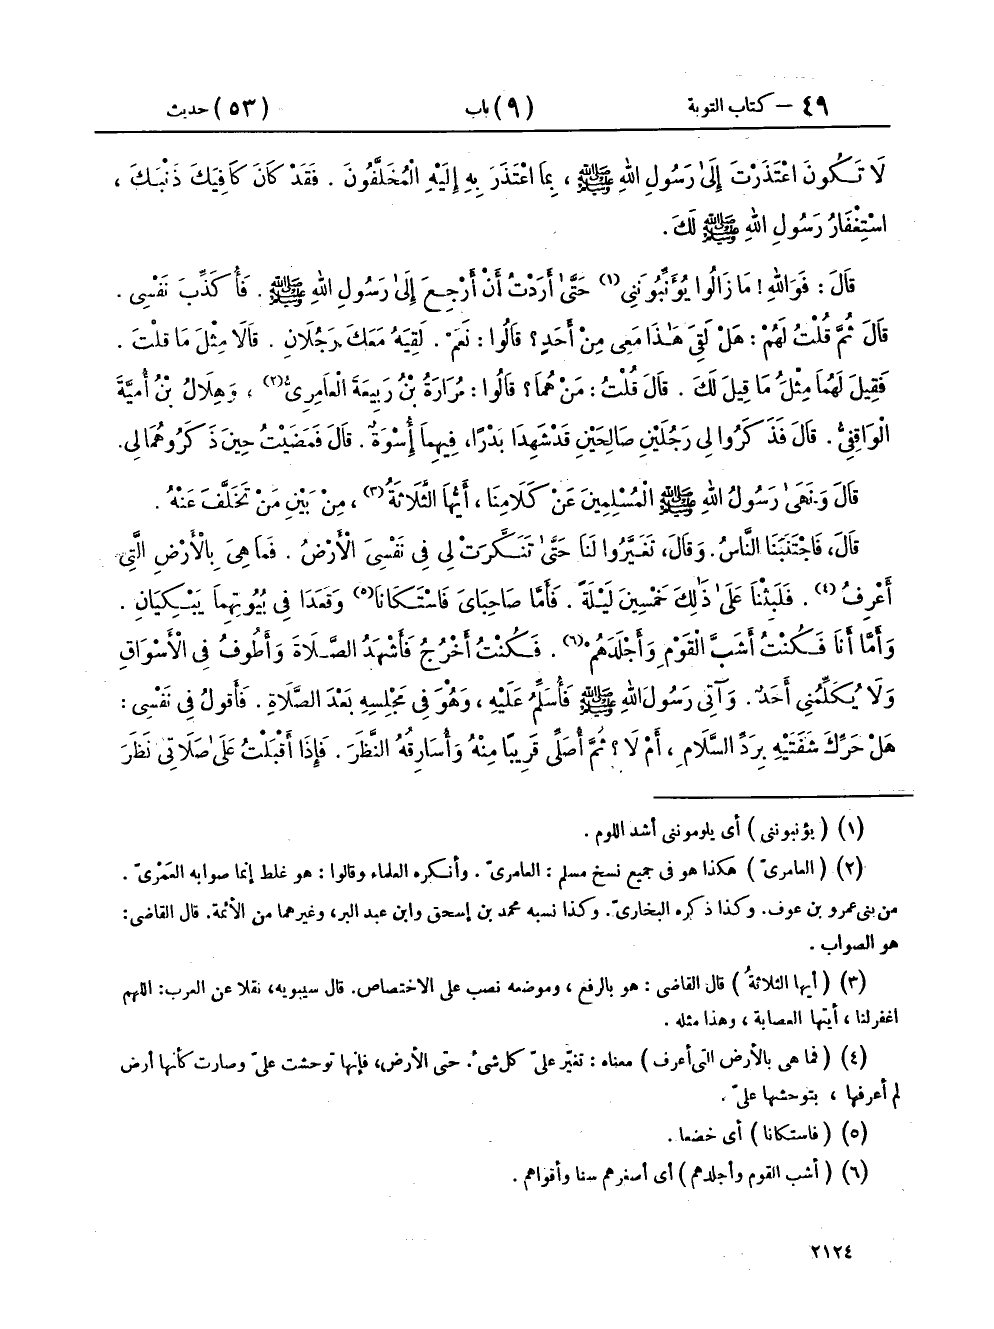 ٤٩ – كتاب التوبة (٩) باب (٥٣) حديث
لَا تَكُونَ اعْتَذَرْتَ إِلَىٰ رَسُولِ اللهِ ﷺ ، بِمَا اعْتَذَرَ بِهِ إِلَيْهِ الْمُخَلَّفُونَ . فَقَدْ كَانَ كَافِيَكَ ذَنْبَكَ ،
اسْتِغْفَارُ رَسُولِ اللهِ ﷺ لَكَ .
قَالَ : فَوَاللهِ ! مَا زَالُوا يُؤَنِّبُونَنِي (١) حَتَّىٰ أَرَدْتُ أَنْ أَرْجِعَ إِلَىٰ رَسُولِ اللهِ ﷺ . فَأُكَذِّبَ نَفْسِي .
قَالَ ثُمَّ قُلْتُ لَهُمْ : هَلْ لَقِيَ هَٰذَا مَعِي مِنْ أَحَدٍ ؟ قَالُوا : نَعَمْ . لَقِيَهُ مَعَكَ رَجُلَانِ . قَالَا مِثْلَ مَا قُلْتَ .
فَقِيلَ لَهُمَا مِثْلُ مَا قِيلَ لَكَ . قَالَ قُلْتُ : مَنْ هُمَا ؟ قَالُوا : مُرَارَةُ بْنُ رَبِيعَةَ الْعَامِرِيُّ (٢) ، وَهِلَالُ بْنُ أُمَيَّةَ
الْوَاقِفِيُّ . قَالَ فَذَكَرُوا لِي رَجُلَيْنِ صَالِحَيْنِ قَدْ شَهِدَا بَدْرًا ، فِيهِمَا أُسْوَةٌ . قَالَ فَمَضَيْتُ حِينَ ذَكَرُوهُمَا لِي .
قَالَ وَنَهَىٰ رَسُولُ اللهِ ﷺ الْمُسْلِمِينَ عَنْ كَلَامِنَا ، أَيُّهَا الثَّلَاثَةُ (٣) ، مِنْ بَيْنِ مَنْ تَخَلَّفَ عَنْهُ .
قَالَ ، فَاجْتَنَبَنَا النَّاسُ . وَقَالَ ، تَغَيَّرُوا لَنَا حَتَّىٰ تَنَكَّرَتْ لِي فِي نَفْسِيَ الْأَرْضُ . فَمَا هِيَ بِالْأَرْضِ الَّتِي
أَعْرِفُ (٤) . فَلَبِثْنَا عَلَىٰ ذَٰلِكَ خَمْسِينَ لَيْلَةً . فَأَمَّا صَاحِبَايَ فَاسْتَكَانَا (٥) وَقَعَدَا فِي بُيُوتِهِمَا يَبْكِيَانِ .
وَأَمَّا أَنَا فَكُنْتُ أَشَبَّ الْقَوْمِ وَأَجْلَدَهُمْ (٦) . فَكُنْتُ أَخْرُجُ فَأَشْهَدُ الصَّلَاةَ وَأَطُوفُ فِي الْأَسْوَاقِ
وَلَا يُكَلِّمُنِي أَحَدٌ . وَآتِي رَسُولَ اللهِ ﷺ فَأُسَلِّمُ عَلَيْهِ ، وَهُوَ فِي مَجْلِسِهِ بَعْدَ الصَّلَاةِ . فَأَقُولُ فِي نَفْسِي :
هَلْ حَرَّكَ شَفَتَيْهِ بِرَدِّ السَّلَامِ ، أَمْ لَا ؟ ثُمَّ أُصَلِّي قَرِيبًا مِنْهُ وَأُسَارِقُهُ النَّظَرَ . فَإِذَا أَقْبَلْتُ عَلَىٰ صَلَاتِي نَظَرَ
(١) ( يؤنبونني ) أي يلومونني أشد اللوم .
(٢) ( العامريّ ) هكذا هو في جميع نسخ مسلم : العامريّ . وأنكره العلماء وقالوا : هو غلط إنما صوابه العَمْريّ .
من بني عمرو بن عوف . وكذا ذكره البخاريّ . وكذا نسبه محمد بن إسحق وابن عبد البر ، وغيرهما من الأئمة . قال القاضي :
هو الصواب .
(٣) ( أيها الثلاثةُ ) قال القاضي : هو بالرفع ، وموضعه نصب على الاختصاص . قال سيبويه ، نقلا عن العرب : اللهم
اغفر لنا ، أيتها العصابة ، وهذا مثله .
(٤) ( فما هي بالأرض التي أعرف ) معناه : تغيّر عليّ كل شيء . حتى الأرض ، فإنها توحشت عليّ وصارت كأنها أرض
لم أعرفها ، بتوحشها عليّ .
(٥) ( فاستكانا ) أي خضعا .
(٦) ( أشب القوم وأجلدهم ) أي أصغرهم سنا وأقواهم .
٢١٢٤